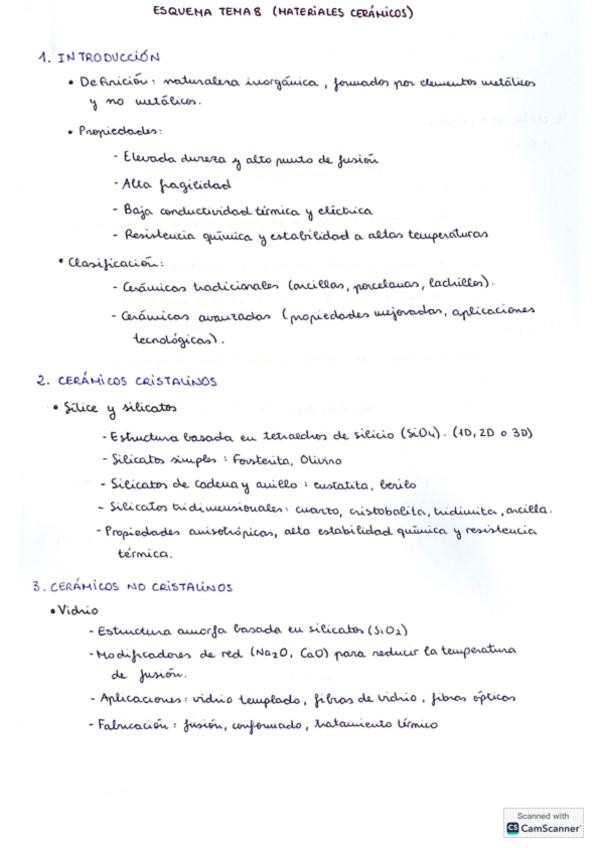 ESQUEMA TEMA 8 (MATERIALES CERÁMICOS)
1. INTRODUCCIÓN
• Definición: naturaleza inorgánica, formados por elementos metálicos
y no metálicos.
• Propiedades:
- Elevada dureza y alto punto de fusión
- Alta fragilidad
- Baja conductividad térmica y eléctrica
- Resistencia química y estabilidad a altas temperaturas
• Clasificación:
- Cerámicos tradicionales (arcillas, porcelanas, ladrillos).
- Cerámicas avanzadas (propiedades mejoradas, aplicaciones
tecnológicas).
2. CERÁMICOS CRISTALINOS
• Sílice y silicatos
- Estructura basada en tetraedros de silicio (SiO4). (1D, 2D o 3D)
- Silicatos simples: Forsterita, Olivino
- Silicatos de cadena y anillo: enstatita, berilo
- Silicatos tridimensionales: cuarzo, cristobalita, tridimita, arcilla.
- Propiedades anisotrópicas, alta estabilidad química y resistencia
térmica.
3. CERÁMICOS NO CRISTALINOS
• Vidrio
- Estructura amorfa basada en silicatos (SiO2)
- Modificadores de red (Na2O, CaO) para reducir la temperatura
de fusión.
- Aplicaciones: vidrio templado, fibras de vidrio, fibras ópticas
- Fabricación: fusión, conformado, tratamiento térmico
Scanned with
CS CamScanner